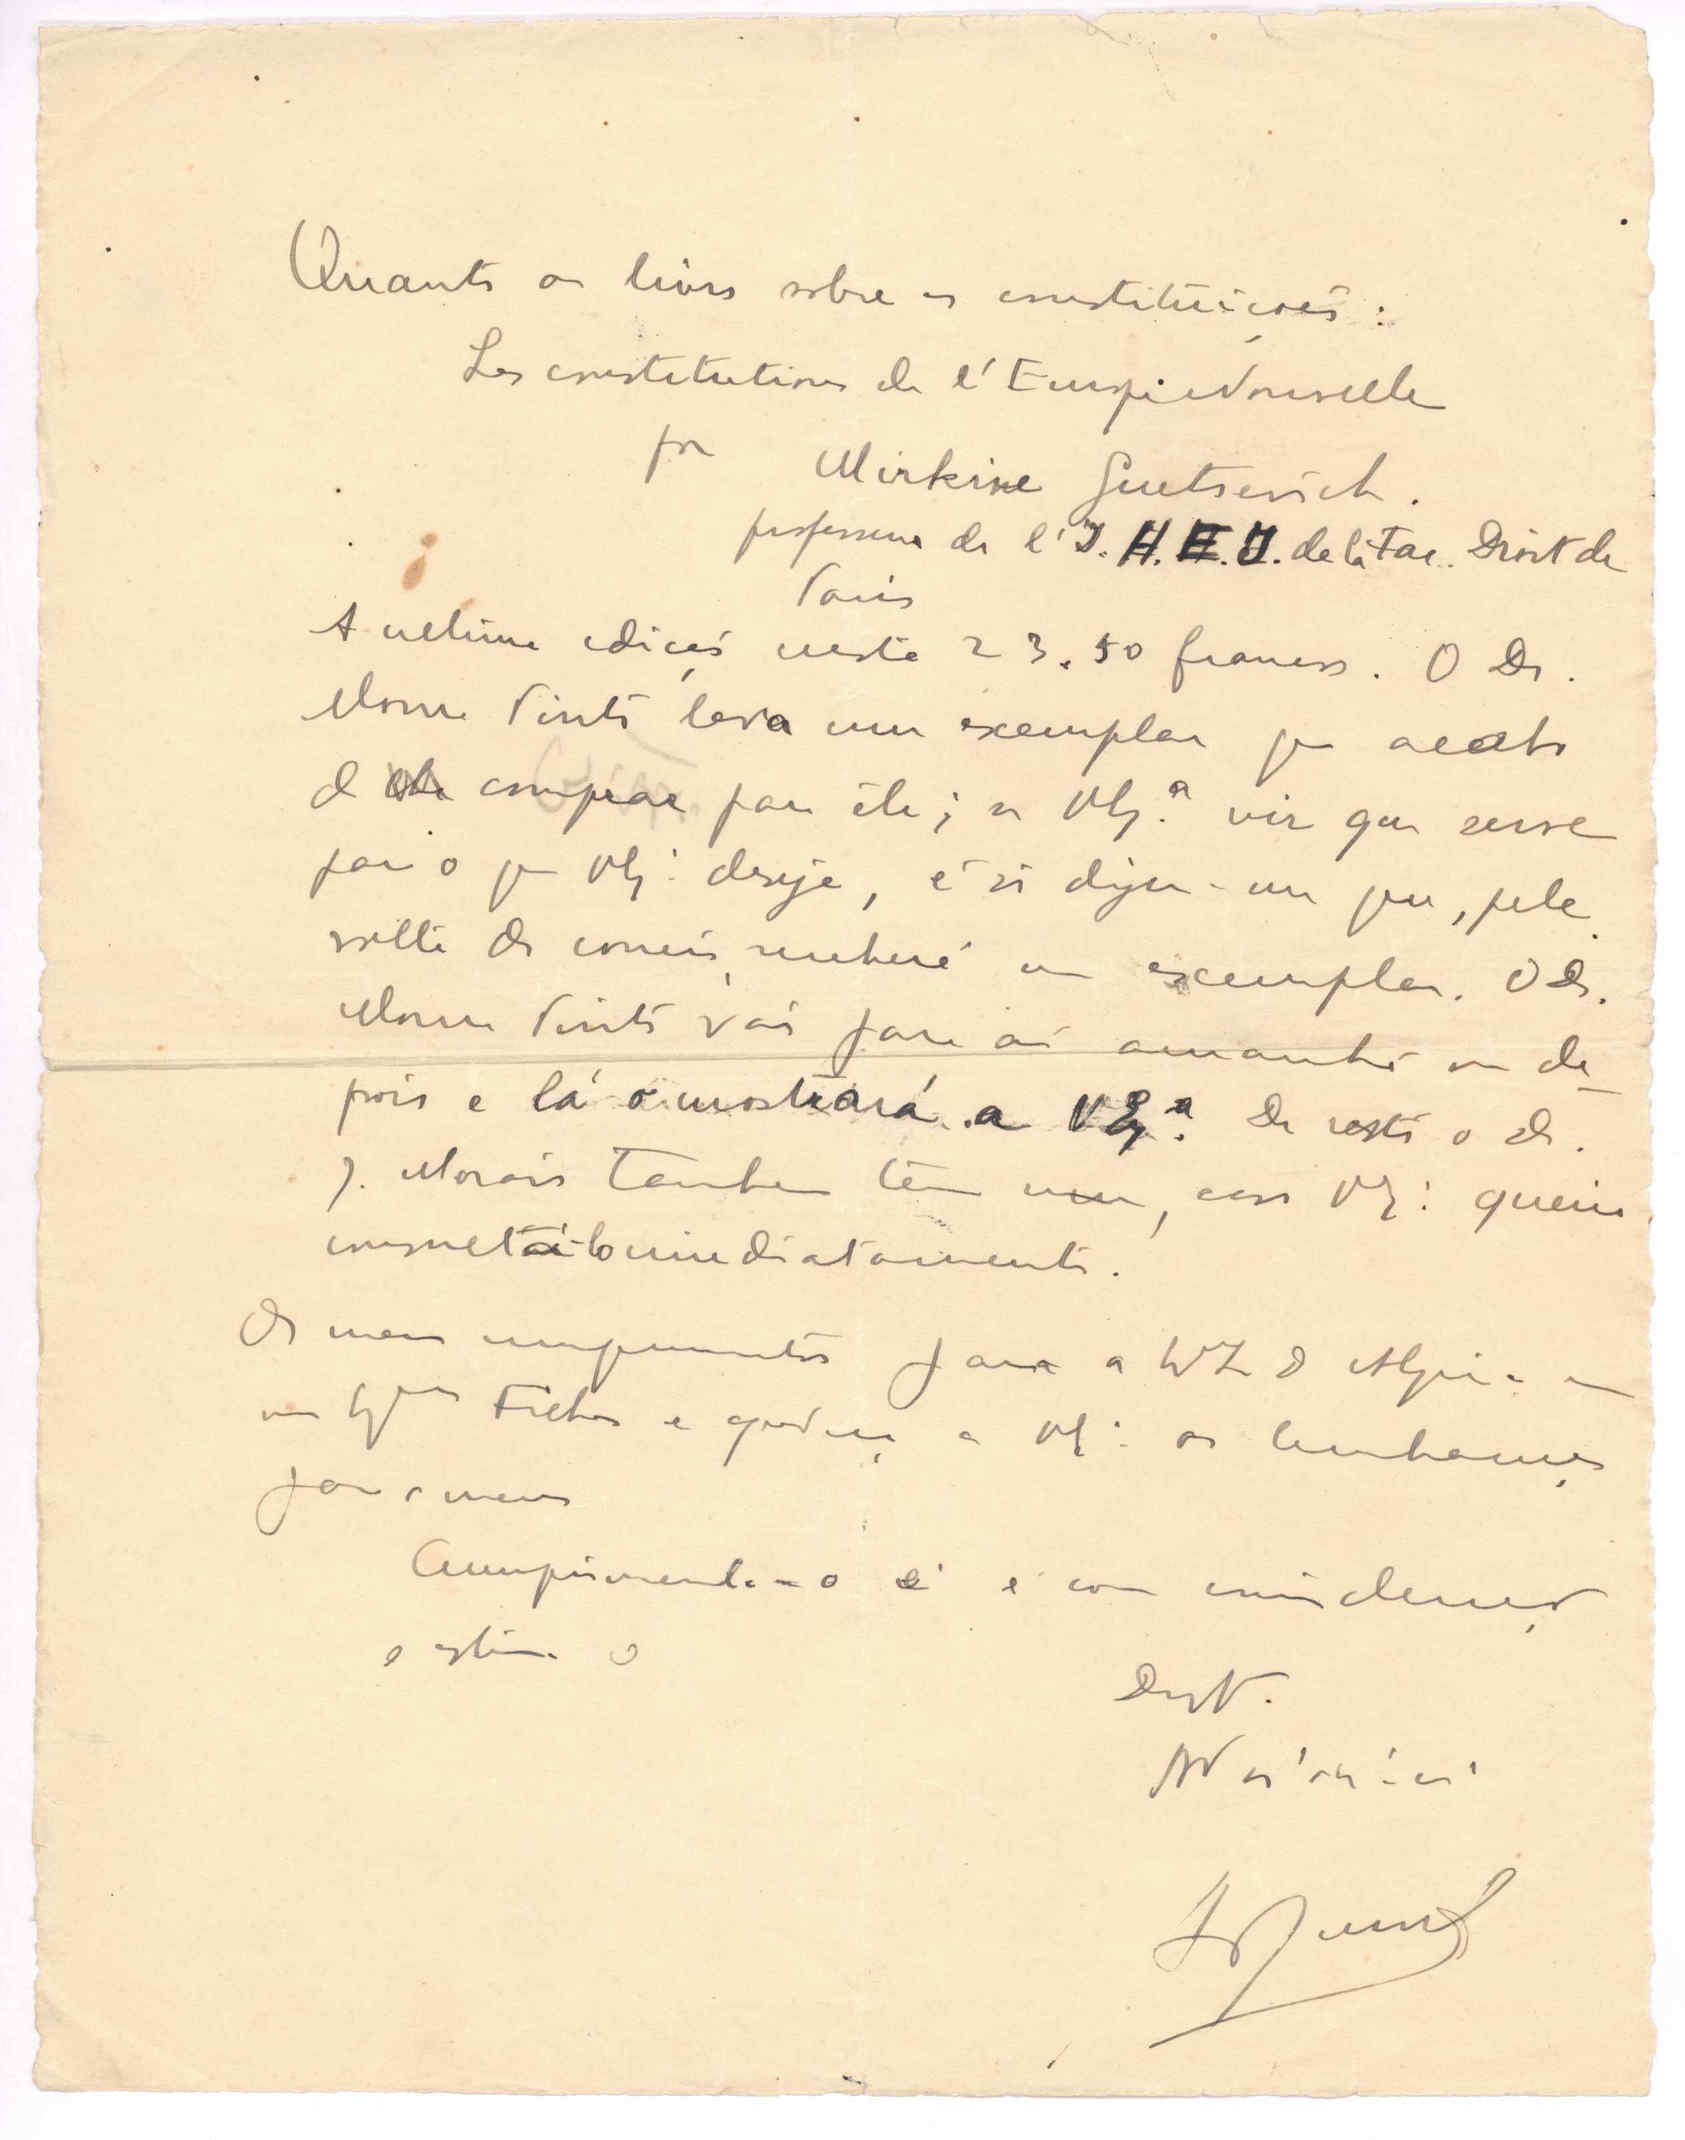 Quanto os livros sobre as constituições:
Les constitutions de l'Europe Nouvelle
por Mirkine Guetsevich.
professeur de l'I. H. E. I. de la Fac. Droit de
Paris
A ultima edição custa 23.50 francos. O Dr.
Moura Pinto leva um exemplar que acabo
de comprar para êle; se V Ex.ª vir que serve
para o que V Ex.ª deseja, é só dizer-me que, pela
volta do correio, receberá um exemplar. O Dr.
Moura Pinto vai para aí amanhã ou de-
pois e lá o mostrará a V Ex.ª De resto o Dr.
J. Morais tambem tem um, caso V Ex.ª queira
consultá-lo imediatamente.
Os meus cumprimentos para a
Filhos e a V Ex.ª as lembranças
para os meus
Cumprimenta-o e é com consideração
e estima o